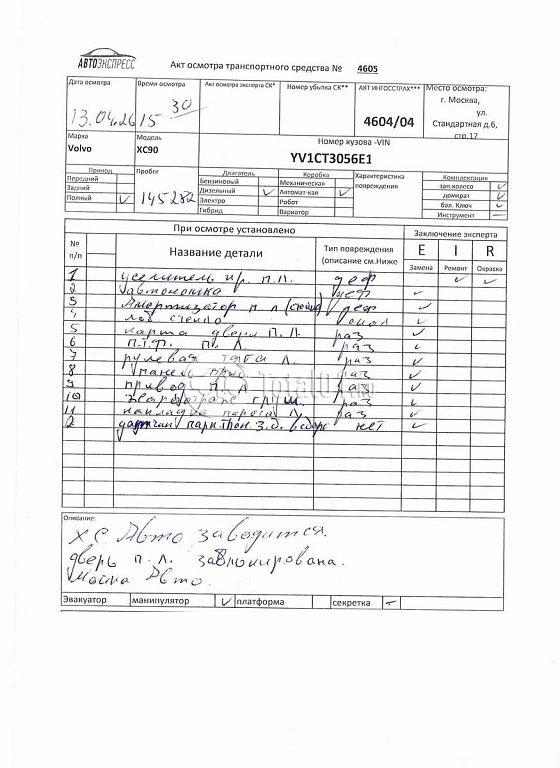 АВТОЭКСПРЕСС
Акт осмотра транспортного средства № 4605
Дата осмотра Время осмотра Акт осмотра эксперта СК* Номер убытка СК** АКТ ИНГОССТРАХ*** Место осмотра:
13.04.26 15 30 4604/04 г. Москва,
ул.
Стандартная д.6,
стр.17
Марка Модель Номер кузова -VIN
Volvo XC90 YV1CT3056E1
Привод Пробег Двигатель Коробка Характеристика повреждения Комплектация
Передний Бензиновый Механическая зап.колесо ✓
Задний 145282 Дизельный ✓ Автомат-кая ✓ домкрат ✓
Полный ✓ Электро Робот бал. Ключ ✓
Гибрид Вариатор Инструмент —
При осмотре установлено Заключение эксперта
№ п/п Название детали Тип повреждения (описание см.Ниже E I R
Замена Ремонт Окраска
1 усилитель пр. п.л. деф ✓ ✓
2 деф ✓
3 Амортизатор п л деф ✓
4 лоб стекло ✓
5 карта двери П.Л. раз ✓
6 П.Т.Ф. П. Л раз ✓
7 рулевая тяга Л. раз ✓
8 панель раз ✓
9 привод п л раз ✓
10 раз ✓
11 накладка порога Л раз ✓
2 датчик парктрон. З.б. нет ✓
Описание:
Х С Авто заводится.
дверь п. л. заблокирована.
мойка Авто.
Эвакуатор манипулятор ✓ платформа секретка —
TotalO